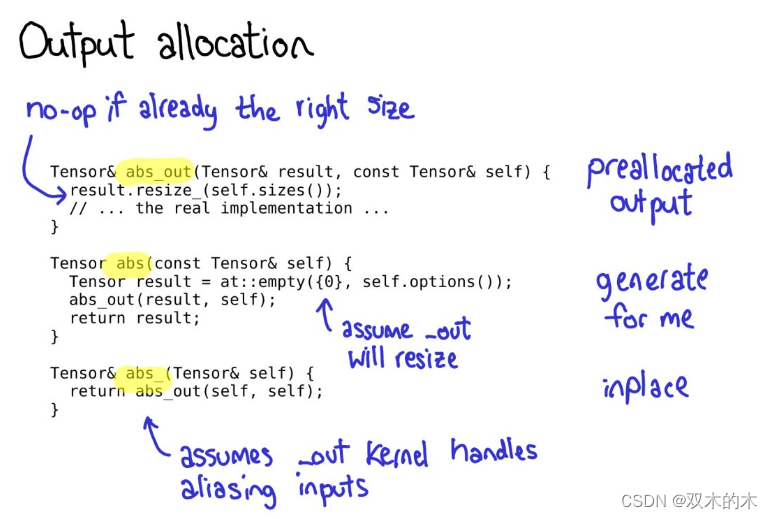 Output allocation
no-op if already the right size
Tensor& abs_out(Tensor& result, const Tensor& self) {
result.resize_(self.sizes());
// ... the real implementation ...
}
preallocated
output
Tensor abs(const Tensor& self) {
Tensor result = at::empty({0}, self.options());
abs_out(result, self);
return result;
}
generate
for me
assume _out
will resize
Tensor& abs_(Tensor& self) {
return abs_out(self, self);
}
inplace
assumes _out kernel handles
aliasing inputs
CSDN @双木的木